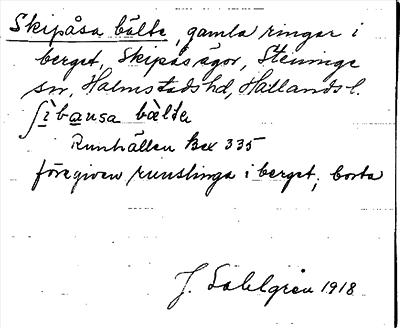 Skipåsa bälte, gamla ringar i
berget, Skipås ägor, Steninge
sn, Halmstads hd, Hallands l.
ʃìbansa bàlta
Runhällen Bex 335
föregiven runslinga i berget; borta
J. Sahlgren 1918